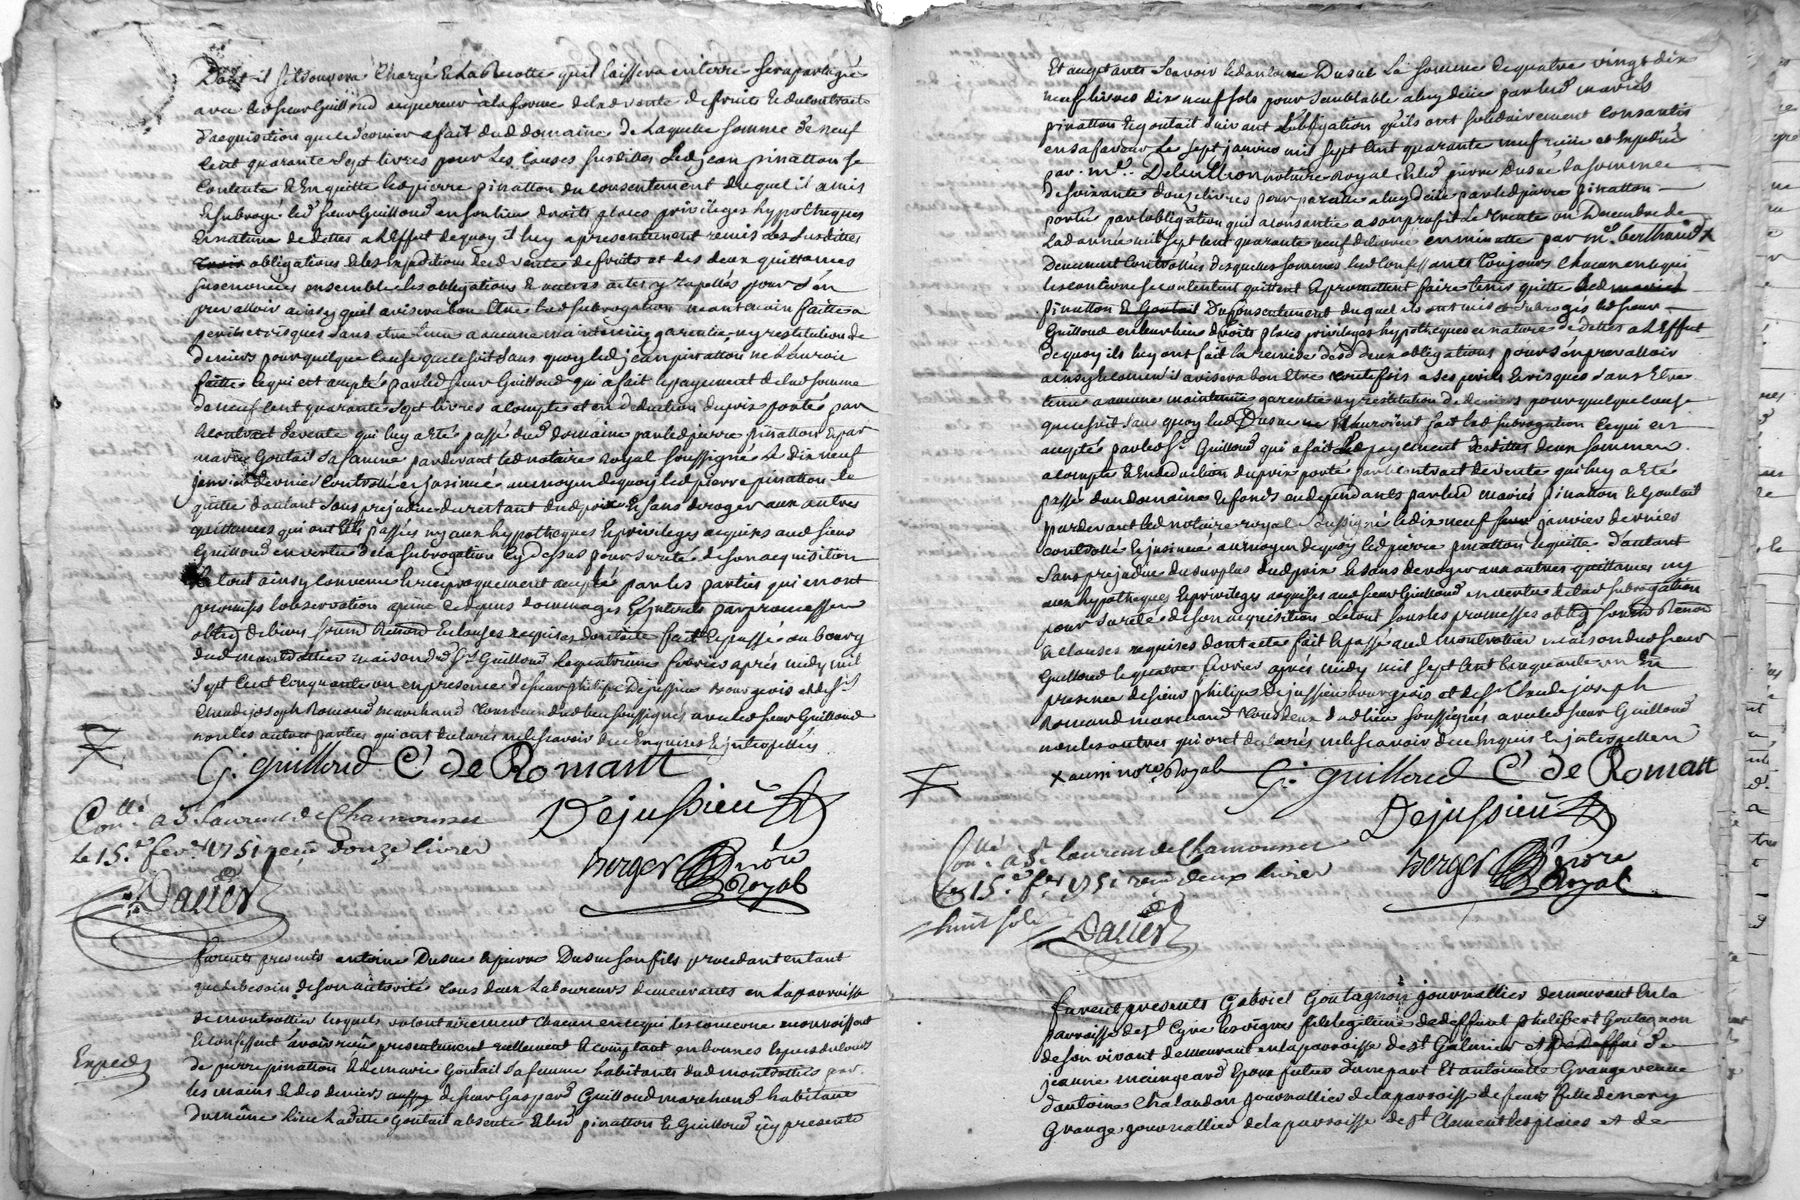 avec led sieur Guilloud acquereur a la forme de la vente de fruits & du contract
d'acquisition que le dernier a fait dud domaine de laquelle somme de neuf
cent quarante sept livres pour les causes susdittes led jean pinatton se
contente & en quitte led pierre pinatton du consentement duquel il a mis
& subrogé led sieur Guilloud en son lieu droits places privileges hypotheques
& nature de dettes a l'effet de quoy il luy a presentement remis les susdittes
obligations & les expeditions de vente de fruits et des deux quittances
susenoncées ensemble les obligations & autres actes y rapellés pour s'en
prevalloir ainsy quil avisera bon etre lad subrogation neantmoin faitte a
perils et risques sans etre tenu a aucune maintenüe garentie ny restitution de
deniers pour quelque cause que ce soit sans quoy led jean pinatton ne l'auroit
faitte ce qui est accepté par led sieur Guilloud qui a fait le payement de lad somme
de neuf cent quarante sept livres a compte et en deduction du prix porté par
le contract de vente qui luy a eté passé dud domaine par led pierre pinatton & par
marie Goutail sa femme pardevant led notaire royal soussigné le dix neuf
janvier dernier controllé & insinué au moyen de quoy led pierre pinatton le
quitte d'autant sans prejudice du restant dud prix & sans deroger aux autres
quittances qui ont eté passées ny aux hypotheques & privileges acquises aud sieur
Guilloud en vertu de la subrogation cy dessus pour sureté de son acquisition
le tout ainsy convenu & reciproquement accepté par les parties qui en ont
promis l'observation a peine de tous dommages & interets par promesses
oblig de biens soum renon & clauses requises dont acte fait & passé au bourg
dud montrottier maison dud Sr Guilloud le quatrieme fevrier après midy mil
sept cent cinquante un en presence de sieur philipe Dejussieu bourgeois et de Sr
Claude joseph Romand marchand tous deux dud lieu soussignés avec led sieur Guilloud
non les autres parties qui ont declarés ne le scavoir de ce enquises & interpellées
G. guilloud C j de Romant
Dejussieü
Conllé a St Laurent de Chamousset
le 15e fevr 1751 reçu douze livres
berger nore Royal
Dauier
furent presents antoine Dusuc & pierre Dusuc son fils procedant en tant
que de besoin de son autorité tous deux laboureurs demeurants en la parroisse
de montrottier lesquels volontairement chacun en ce qui les concerne reconnoissent
& confessent avoir reçu presentement reellement & comptant en bonnes especes de cours
Exped
de pierre pinatton & de marie Goutail sa femme habitants dud montrottier par
les mains & des deniers de sieur Gaspard Guilloud marchand habitant
du même lieu laditte Goutail absente & led pinatton & Guilloud icy presents
et acceptants scavoir led antoine Dusuc la somme de quatre vingt dix
neuf livres dix neuf sols pour semblable a luy düe par lesd mariés
pinatton & goutail suivant l'obligation quils ont solidairement consentie
en sa faveur le sept janvier mil sept cent quarante neuf reçüe et expediée
par Me notaire royal & led pierre Dusuc la somme
de soixante douze livres pour pareille a luy düe par led pierre pinatton
portée par l'obligation qu'il a consentie a son profit le trente un Decembre de
lad année mil sept cent quarante neuf delivrée en minutte par Me berthaud x
deuement controllées desquelles sommes lesd confessants toujours chacun en ce qui
les concerne se contentent quittent & promettent faire tenir quitte
pinatton & Goutail du consentement duquel ils ont mis et subrogés led sieur
Guilloud en leur lieu droits places privileges hypotheques et nature de dettes a l'effet
de quoy ils luy ont fait la remise desd deux obligations pour s'en prevalloir
ainsy & comment il avisera bon etre toutefois a ses perils & risques sans etre
tenus a aucune maintenüe garentie ny restitution de deniers pour quelque cause
que ce soit sans quoy lesd Dusuc ne l'auroient fait lad subrogation ce qui est
accepté par led Sr Guilloud qui a fait led payement desdittes deux sommes
a compte & en deduction du prix porté par le contract de vente qui luy a eté
passé dud domaine & fonds en dependants par lesd mariés pinatton & Goutail
pardevant led notaire royal soussigné le dix neuf janvier dernier
controllé & insinué au moyen de quoy led pierre pinatton le quitte d'autant
sans prejudice du surplus dud prix & sans deroger aux autres quittances ny
aux hypotheques & privileges acquises aud sieur Guilloud en vertu de lad subrogation
pour sureté de son acquisition le tout sous les promesses oblig soum renon
& clauses requises dont acte fait & passé aud montrottier maison dud sieur
Guilloud le quatre fevrier après midy mil sept cent cinquante un en
presence de sieur philipe Dejussieu bourgeois et de Sr Claude joseph
Romand marchand tous deux dud lieu soussignés avec led sieur Guilloud
non les autres qui ont declarés ne le scavoir de ce enquis & interpellés
x aussi nore Royal
G. guilloud C j de Romant
Dejussieü
Conllé a St laurent de Chamousset
le 15e fevr 1751 reçu deux livres
huit sols
berger nore Royal
Dauier
furent presents Gabriel Goutagnon journallier demeurant en la
parroisse de St Cyre les vignes fils legitime de deffunt philibert Goutagnon
de son vivant demeurant en la parroisse de St Galmier et de
jeanne maingeard epoux futur d'une part et antoinette Grange veuve
d'antoine Chalandon journallier de la parroisse de feurs fille de
Grange journallier de la parroisse de St Clement les places et de